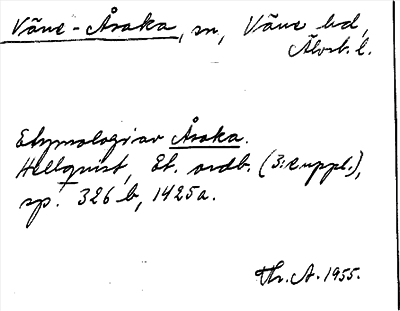 Väne-Åsaka, sn, Väne hd,
Älvsb. l.
Etymologier Åsaka.
Hellquist, Et. ordb. (3:e uppl.),
sp. 326 b, 1425 a.
Th. A. 1955.